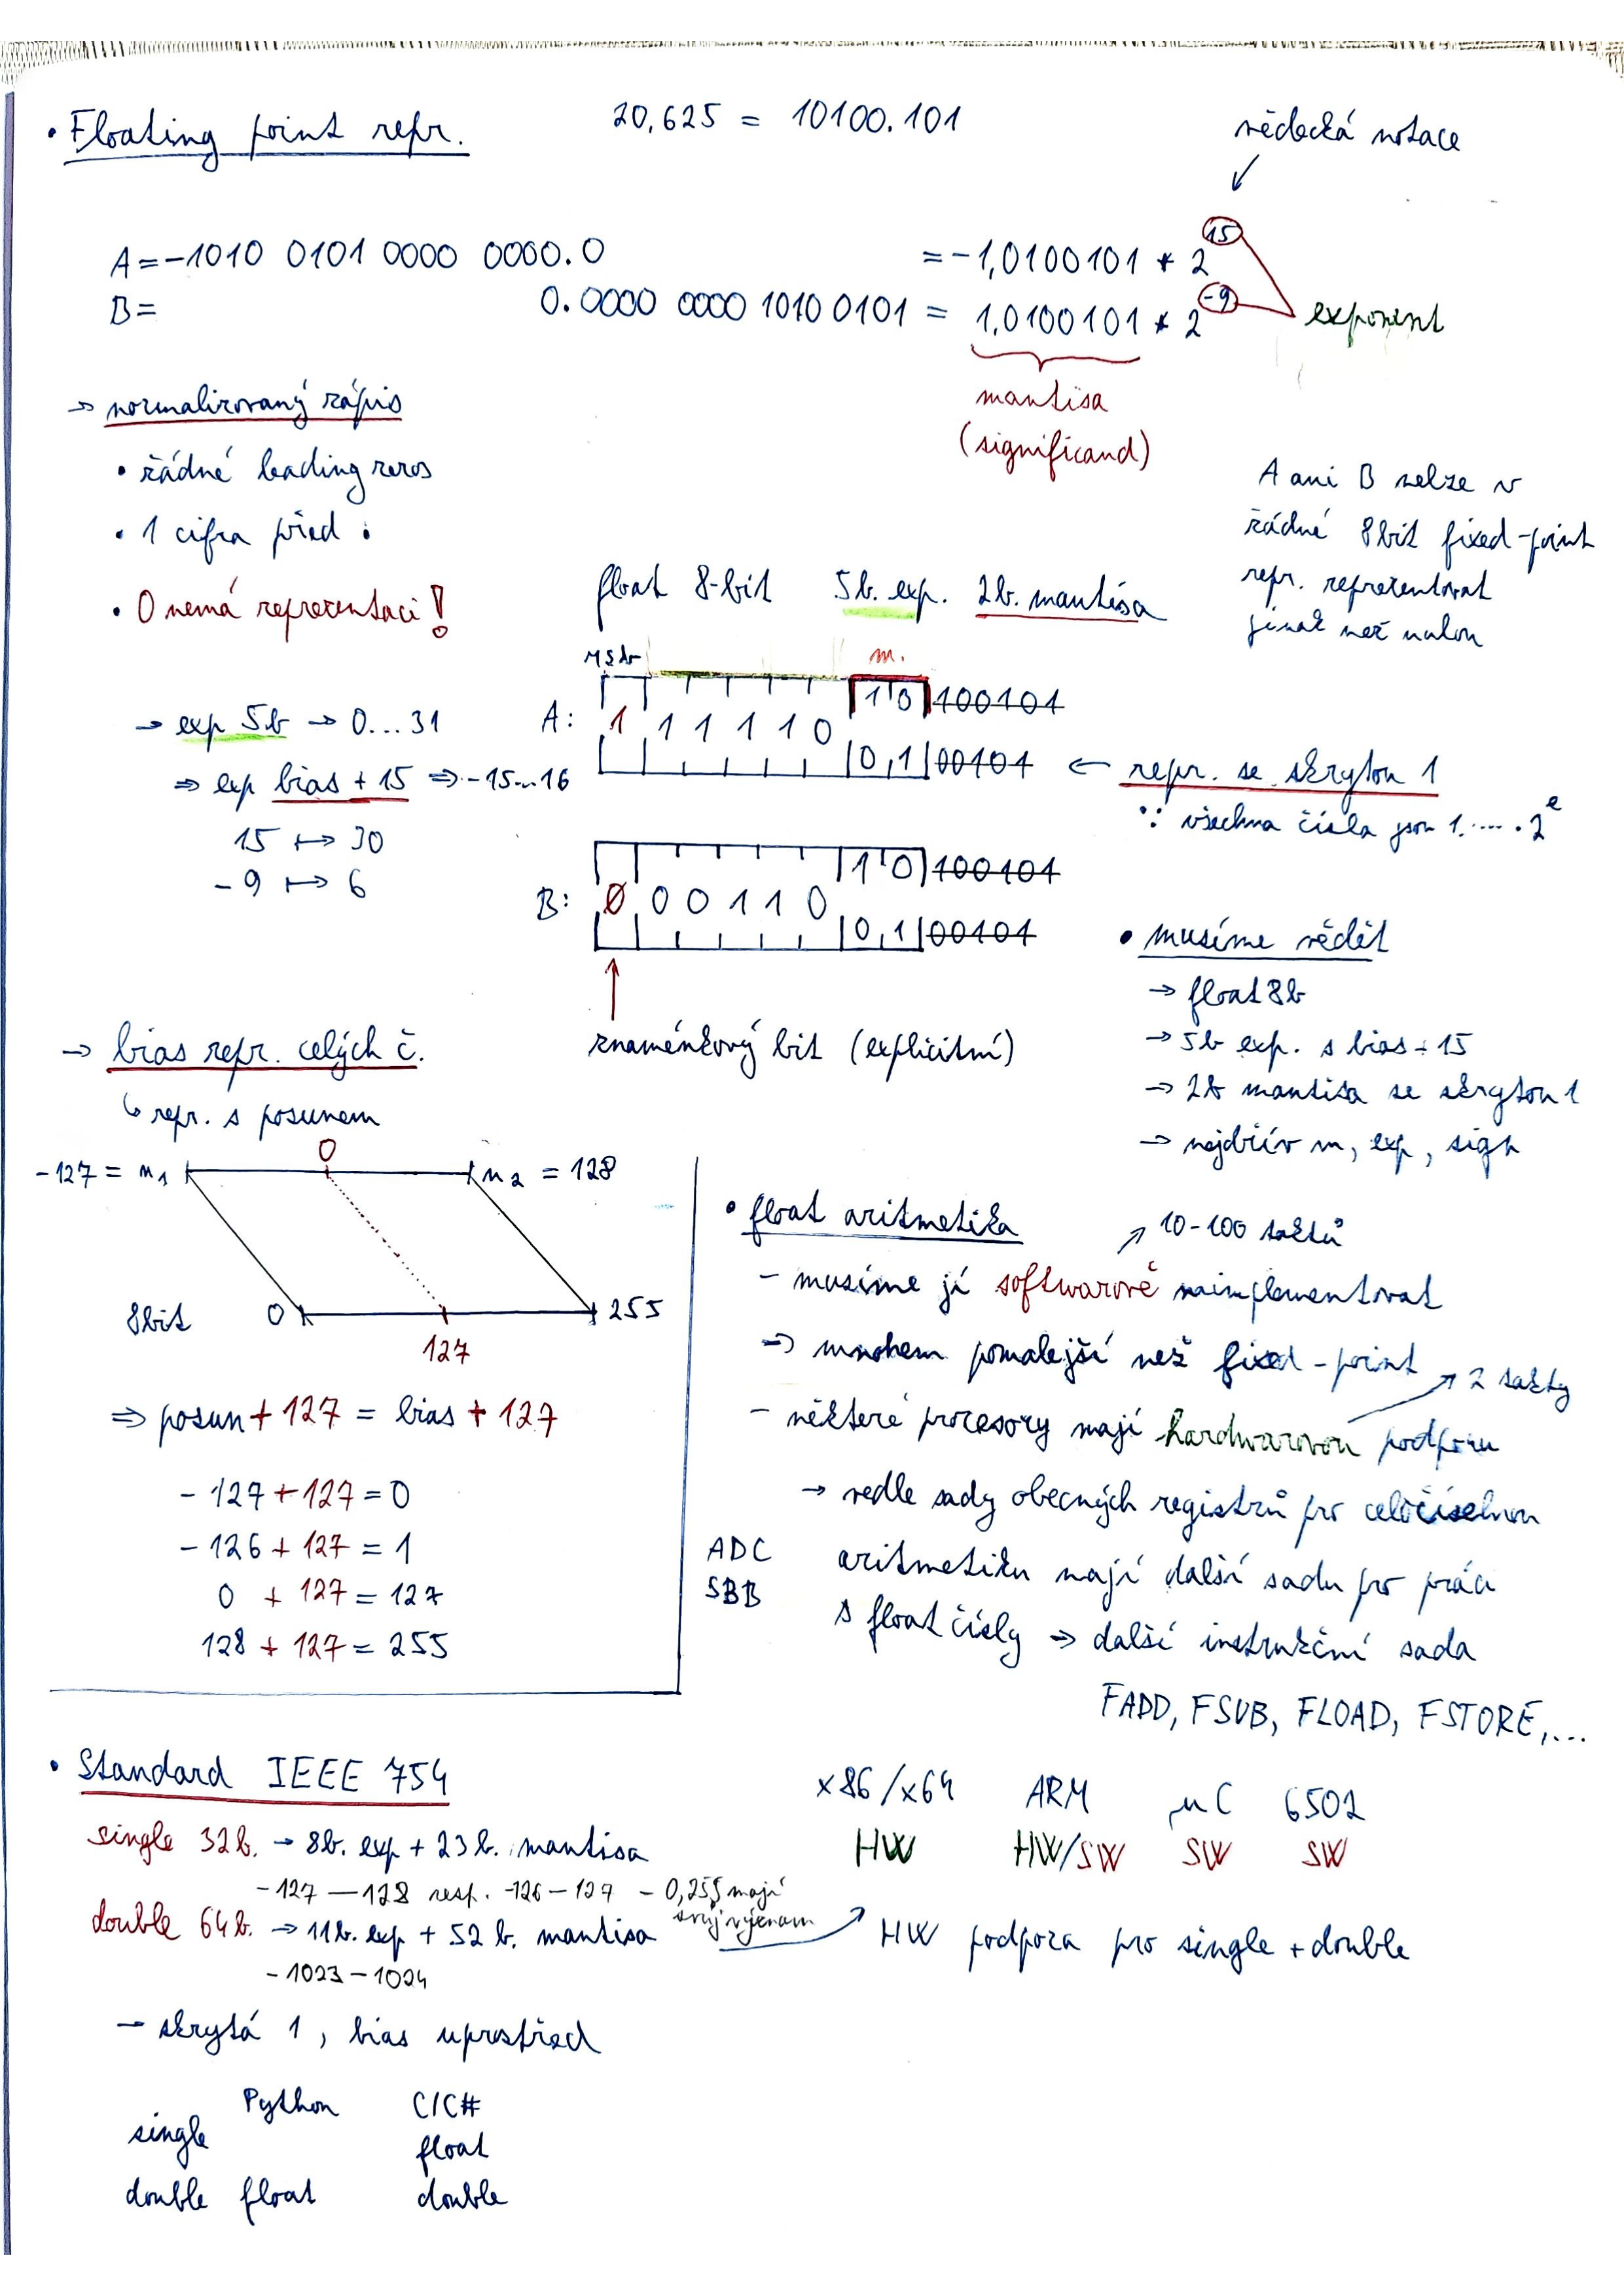 • Floating point repr.
20,625 = 10100.101
vědecká notace
A = -1010 0101 0000 0000.0 = -1,0100101 * 2^15
B = 0.0000 0000 1010 0101 = 1,0100101 * 2^-9
exponent
mantisa
(significand)
→ normalizovaný zápis
• žádné leading zeros
• 1 cifra před .
• 0 nemá reprezentaci!
A ani B nelze v
žádné 8bit fixed-point
repr. reprezentovat
jinak než nulou
float 8-bit 5b. exp. 2b. mantisa
MSb m.
→ exp 5b → 0...31
⇒ exp bias + 15 ⇒ -15...16
15 ↦ 30
-9 ↦ 6
A: 1 1 1 1 1 0
1 0 100101
0,1 00101
← repr. se skrytou 1
∵ všechna čísla jsou 1.···· · 2^e
B: 0 0 0 1 1 0
1 0 100101
0,1 00101
znaménkový bit (explicitní)
• musíme vědět
→ float 8b
→ 5b exp. s bias + 15
→ 2b mantisa se skrytou 1
→ nejdřív m, exp, sign
→ bias repr. celých č.
↳ repr. s posunem
0
-127 = m1 m2 = 128
8bit 0 255
127
⇒ posun + 127 = bias + 127
- 127 + 127 = 0
- 126 + 127 = 1
0 + 127 = 127
128 + 127 = 255
• float aritmetika
↗ 10-100 taktů
- musíme jí softwarově naimplementovat
⇒ mnohem pomalejší než fixed-point
↗ 2 takty
- některé procesory mají hardwarovou podporu
→ vedle sady obecných registrů pro celočíselnou
ADC
SBB
aritmetiku mají další sadu pro práci
s float čísly ⇒ další instrukční sada
FADD, FSUB, FLOAD, FSTORE,...
• Standard IEEE 754
single 32b. → 8b. exp + 23b. mantisa
-127 — 128 resp. -126 — 127 - 0,255 mají
svůj význam
double 64b. → 11b. exp + 52 b. mantisa
-1023 — 1024
→ skrytá 1, bias uprostřed
x86/x64 ARM μC 6502
HW HW/SW SW SW
HW podpora pro single + double
Python C/C#
single float
double float double